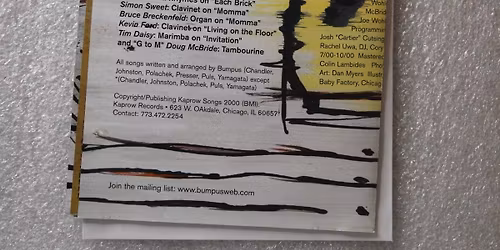 on "Each Brick"
Simon Sweet: Clavinet on "Momma"
Bruce Breckenfeld: Organ on "Momma"
Kevin Ford: Clavinet on "Living on the Floor"
Tim Daisy: Marimba on "Invitation"
and "G to M" Doug McBride: Tambourine
All songs written and arranged by Bumpus (Chandler,
Johnston, Polachek, Presser, Puls, Yamagata) except
*(Chandler, Johnston, Polachek, Puls, Yamagata)
Copyright/Publishing Kaprow Songs 2000 (BMI)
Kaprow Records • 623 W. OAkdale, Chicago, IL 60657
Contact: 773.472.2254
Join the mailing list: www.bumpusweb.com
McBrid
Joe Woh
Programmin
Josh "Cartier" Cutsing
Rachel Uwa, DJ, Cory
7/00-10/00 Mastered
Colin Lambides Pho
Art: Dan Myers Illustr
Baby Factory, Chicag